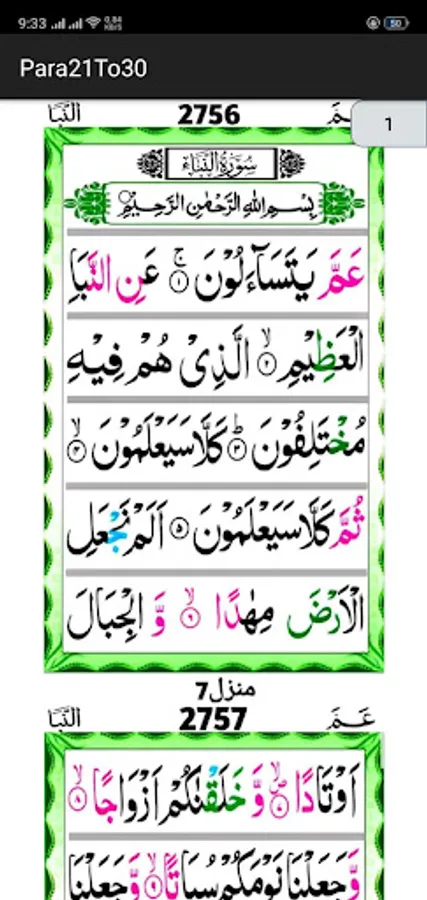 9:33 0.84 KB/S 50
Para21To30
النَّبَا 2756 عَمَّ
1
سُوْرَةُ النَّبَاِ
بِسْمِ اللهِ الرَّحْمٰنِ الرَّحِيْمِ
عَمَّ يَتَسَآءَلُوْنَ ۚ﴿۱﴾ عَنِ النَّبَاِ
الْعَظِيْمِ ۙ﴿۲﴾ الَّذِىْ هُمْ فِيْهِ
مُخْتَلِفُوْنَ ؕ﴿۳﴾ كَلَّا سَيَعْلَمُوْنَ ۙ﴿۴﴾
ثُمَّ كَلَّا سَيَعْلَمُوْنَ ﴿۵﴾ اَلَمْ نَجْعَلِ
الْاَرْضَ مِهٰدًا ۙ﴿۶﴾ وَّ الْجِبَالَ
منزل7
النَّبَا 2757 عَـمَّ
اَوْتَادًا ۪ۙ﴿۷﴾ وَّ خَلَقْنٰكُمْ اَزْوَاجًا ۙ﴿۸﴾
وَّجَعَلْنَا نَوْمَكُمْ سُبَاتًا ۙ﴿۹﴾ وَّجَعَلْنَا